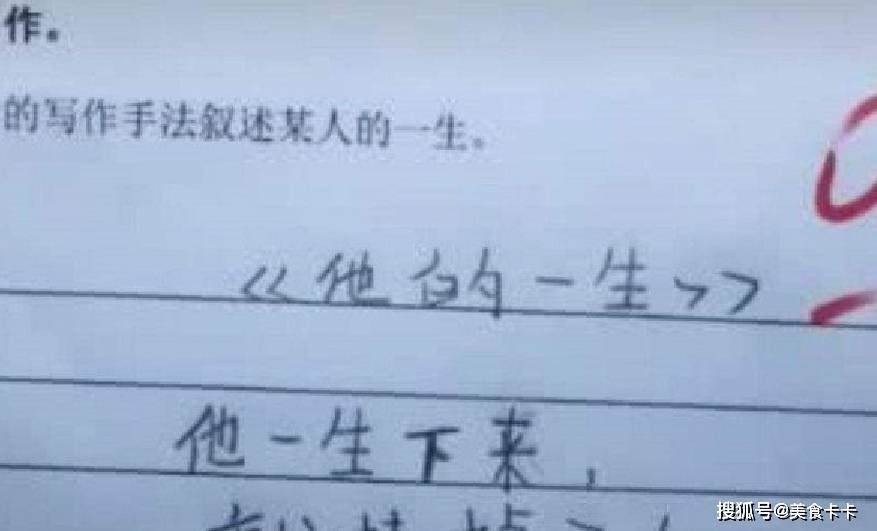 作。
的写作手法叙述某人的一生。
《他的一生》
他一生下来，
搜狐号@美食卡卡